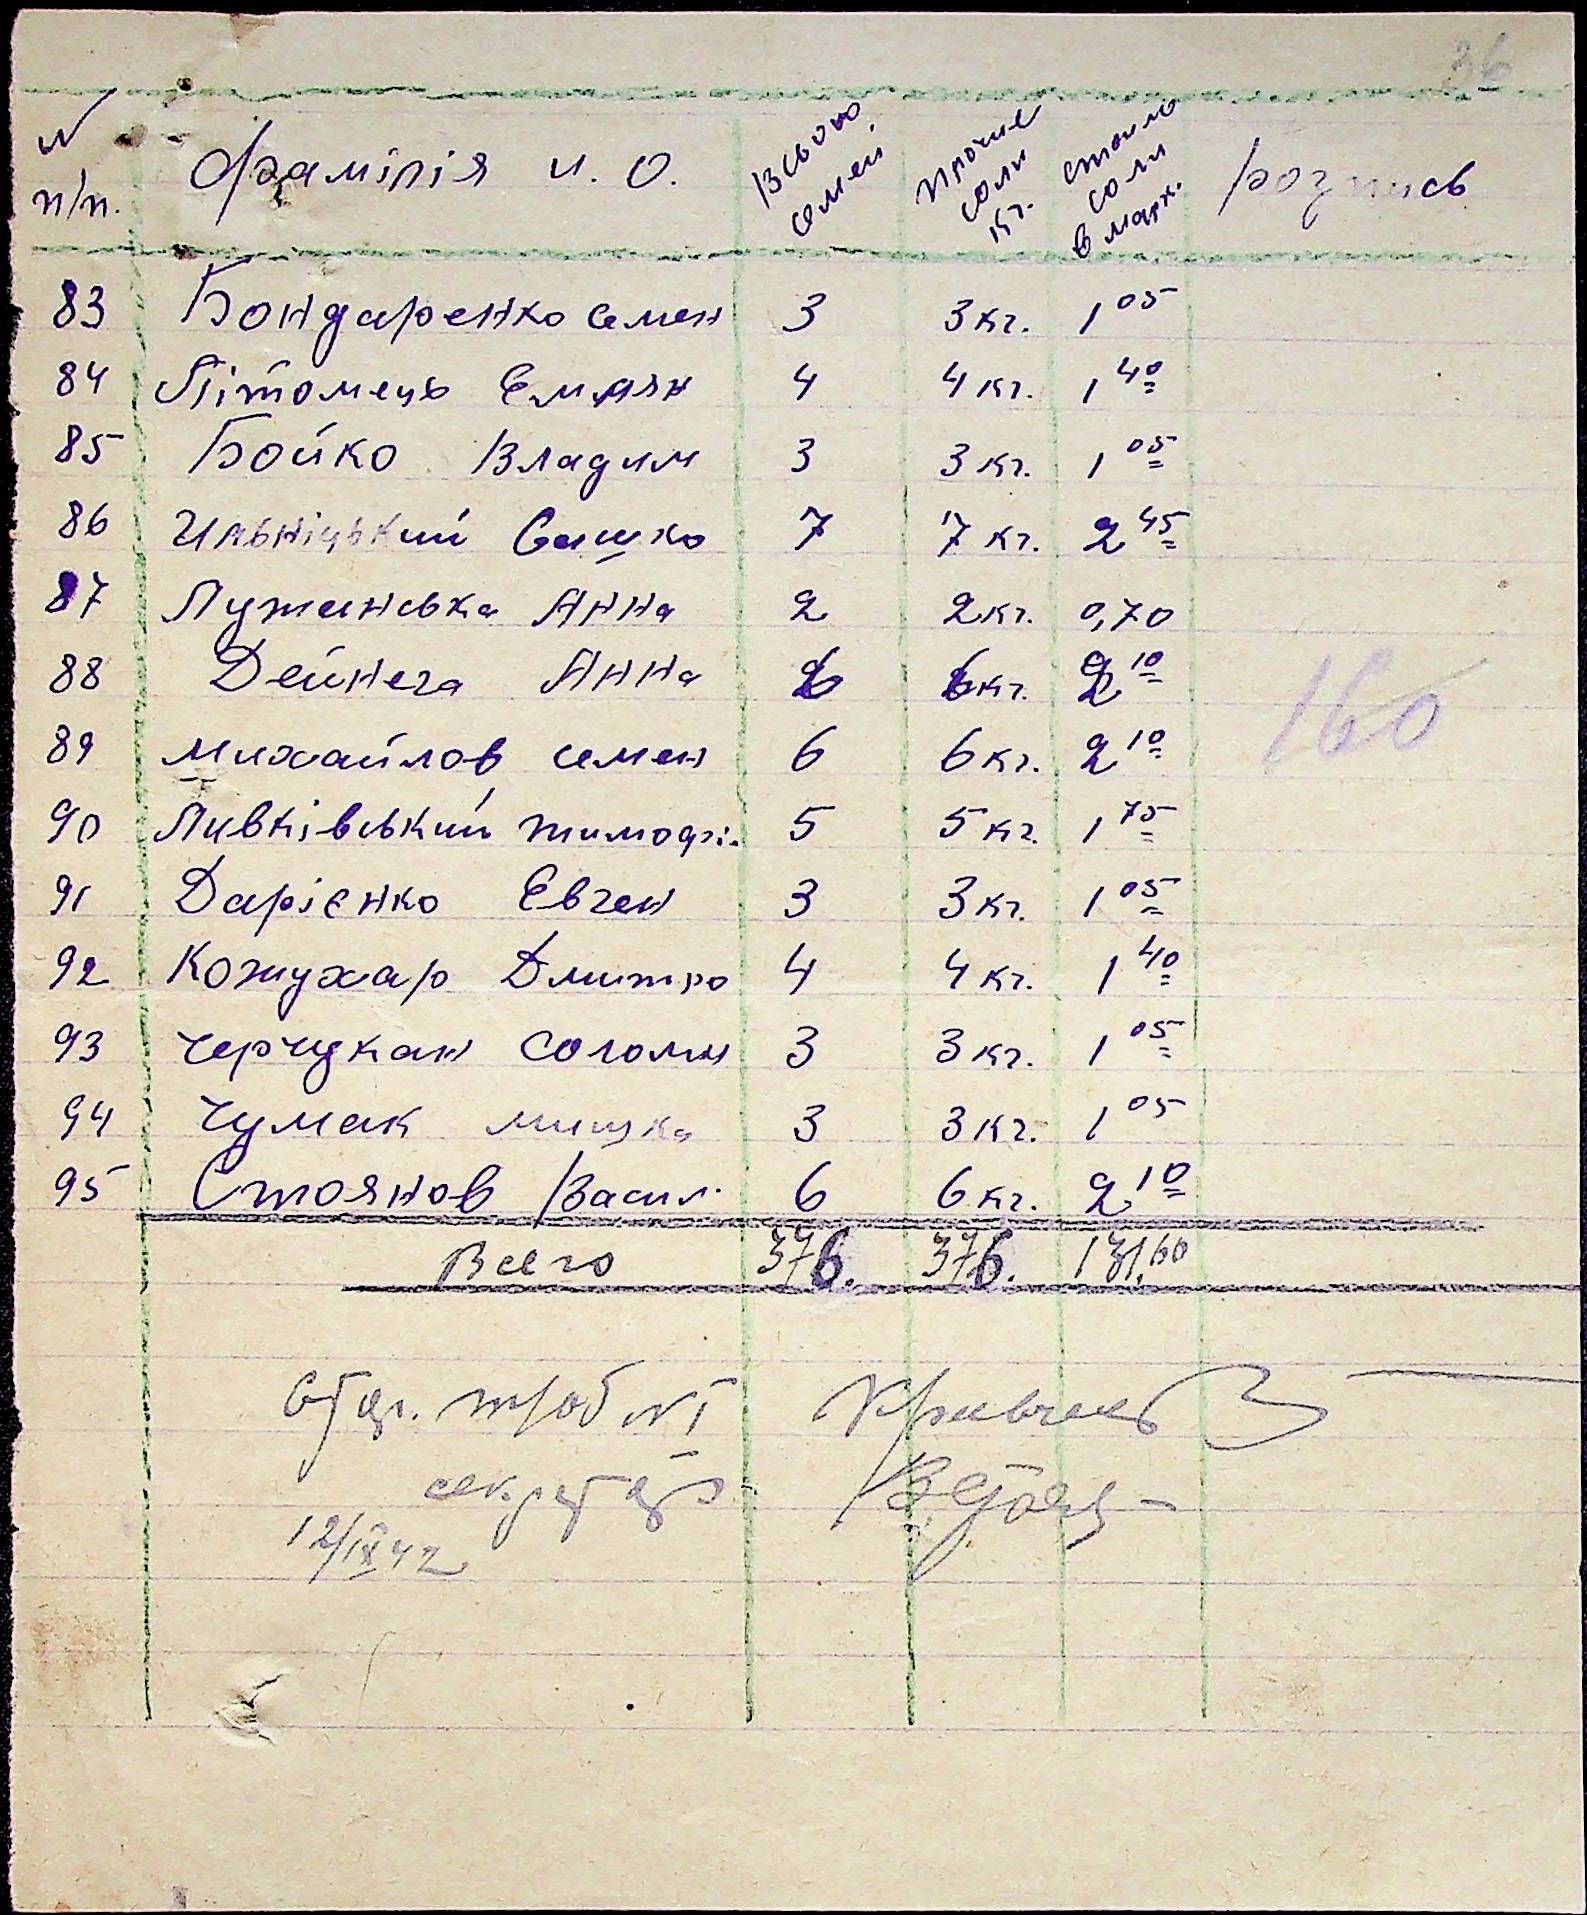 36
N п/п. Фамілія и. О. Всього семей Прочие соли кг. стоимо соли в марк. розпись
83 Бондаренко семен 3 3 кг. 1 05
84 Пітомець Емлян 4 4 кг. 1 40
85 Бойко Владим 3 3 кг. 1 05
86 Ильніцький Сашко 7 7 кг. 2 45
87 Лужанська Анна 2 2 кг. 0,70
88 Дейнега Анна 6 6 кг. 2 10
160
89 Михайлов семен 6 6 кг. 2 10
90 Ливківський тимофі. 5 5 кг. 1 75
91 Дарієнко Евген 3 3 кг. 1 05
92 Кожухар Дмитро 4 4 кг. 1 40
93 Черчукан Соломн 3 3 кг. 1 05
94 Чумак мишка 3 3 кг. 1 05
95 Стоянов Васил. 6 6 кг. 2 10
Всего 376. 376. 131,60
N 1
секретар
12/IX 42